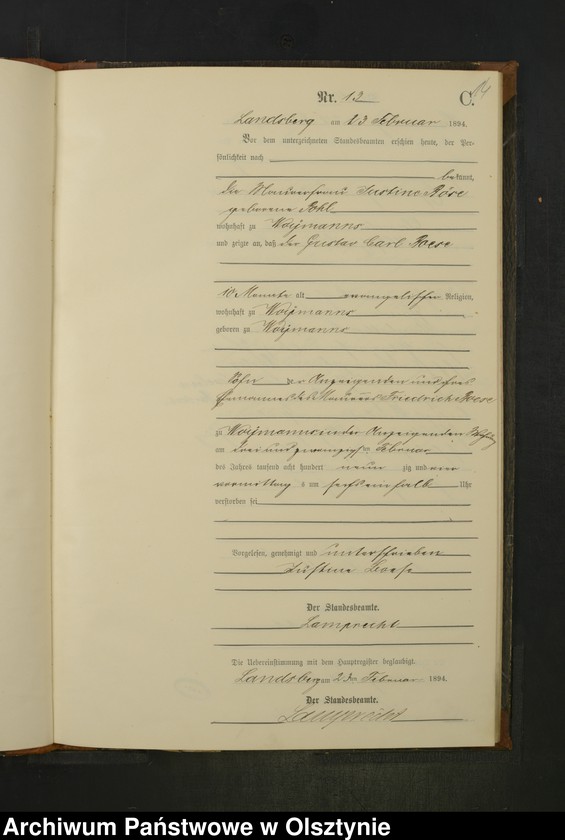 Nr. 12
C.
Landsberg am 23 Februar 1894.
Vor dem unterzeichneten Standesbeamten erschien heute, der Per-
sönlichkeit nach
bekannt,
die Maurerfrau Justine Röse
geborene Pohl
wohnhaft zu Woymanns
und zeigte an, daß der Gustav Carl Roese
10 Monate alt evangelischer Religion,
wohnhaft zu Woymanns
geboren zu Woymanns
Sohn der Anzeigenden und ihres
Ehemannes des Maurers Friedrich Roese
zu Woymanns in der Anzeigenden
am drei und zwanzigsten Februar
des Jahres tausend acht hundert neun zig und vier
vormittags um sechs ein halb Uhr
verstorben sei
Vorgelesen, genehmigt und unterschrieben
Justine Roese
Der Standesbeamte.
Lamprecht
Die Uebereinstimmung mit dem Hauptregister beglaubigt.
Landsberg am 23 Februar 1894.
Der Standesbeamte.
Lamprecht
Archiwum Państwowe w Olsztynie